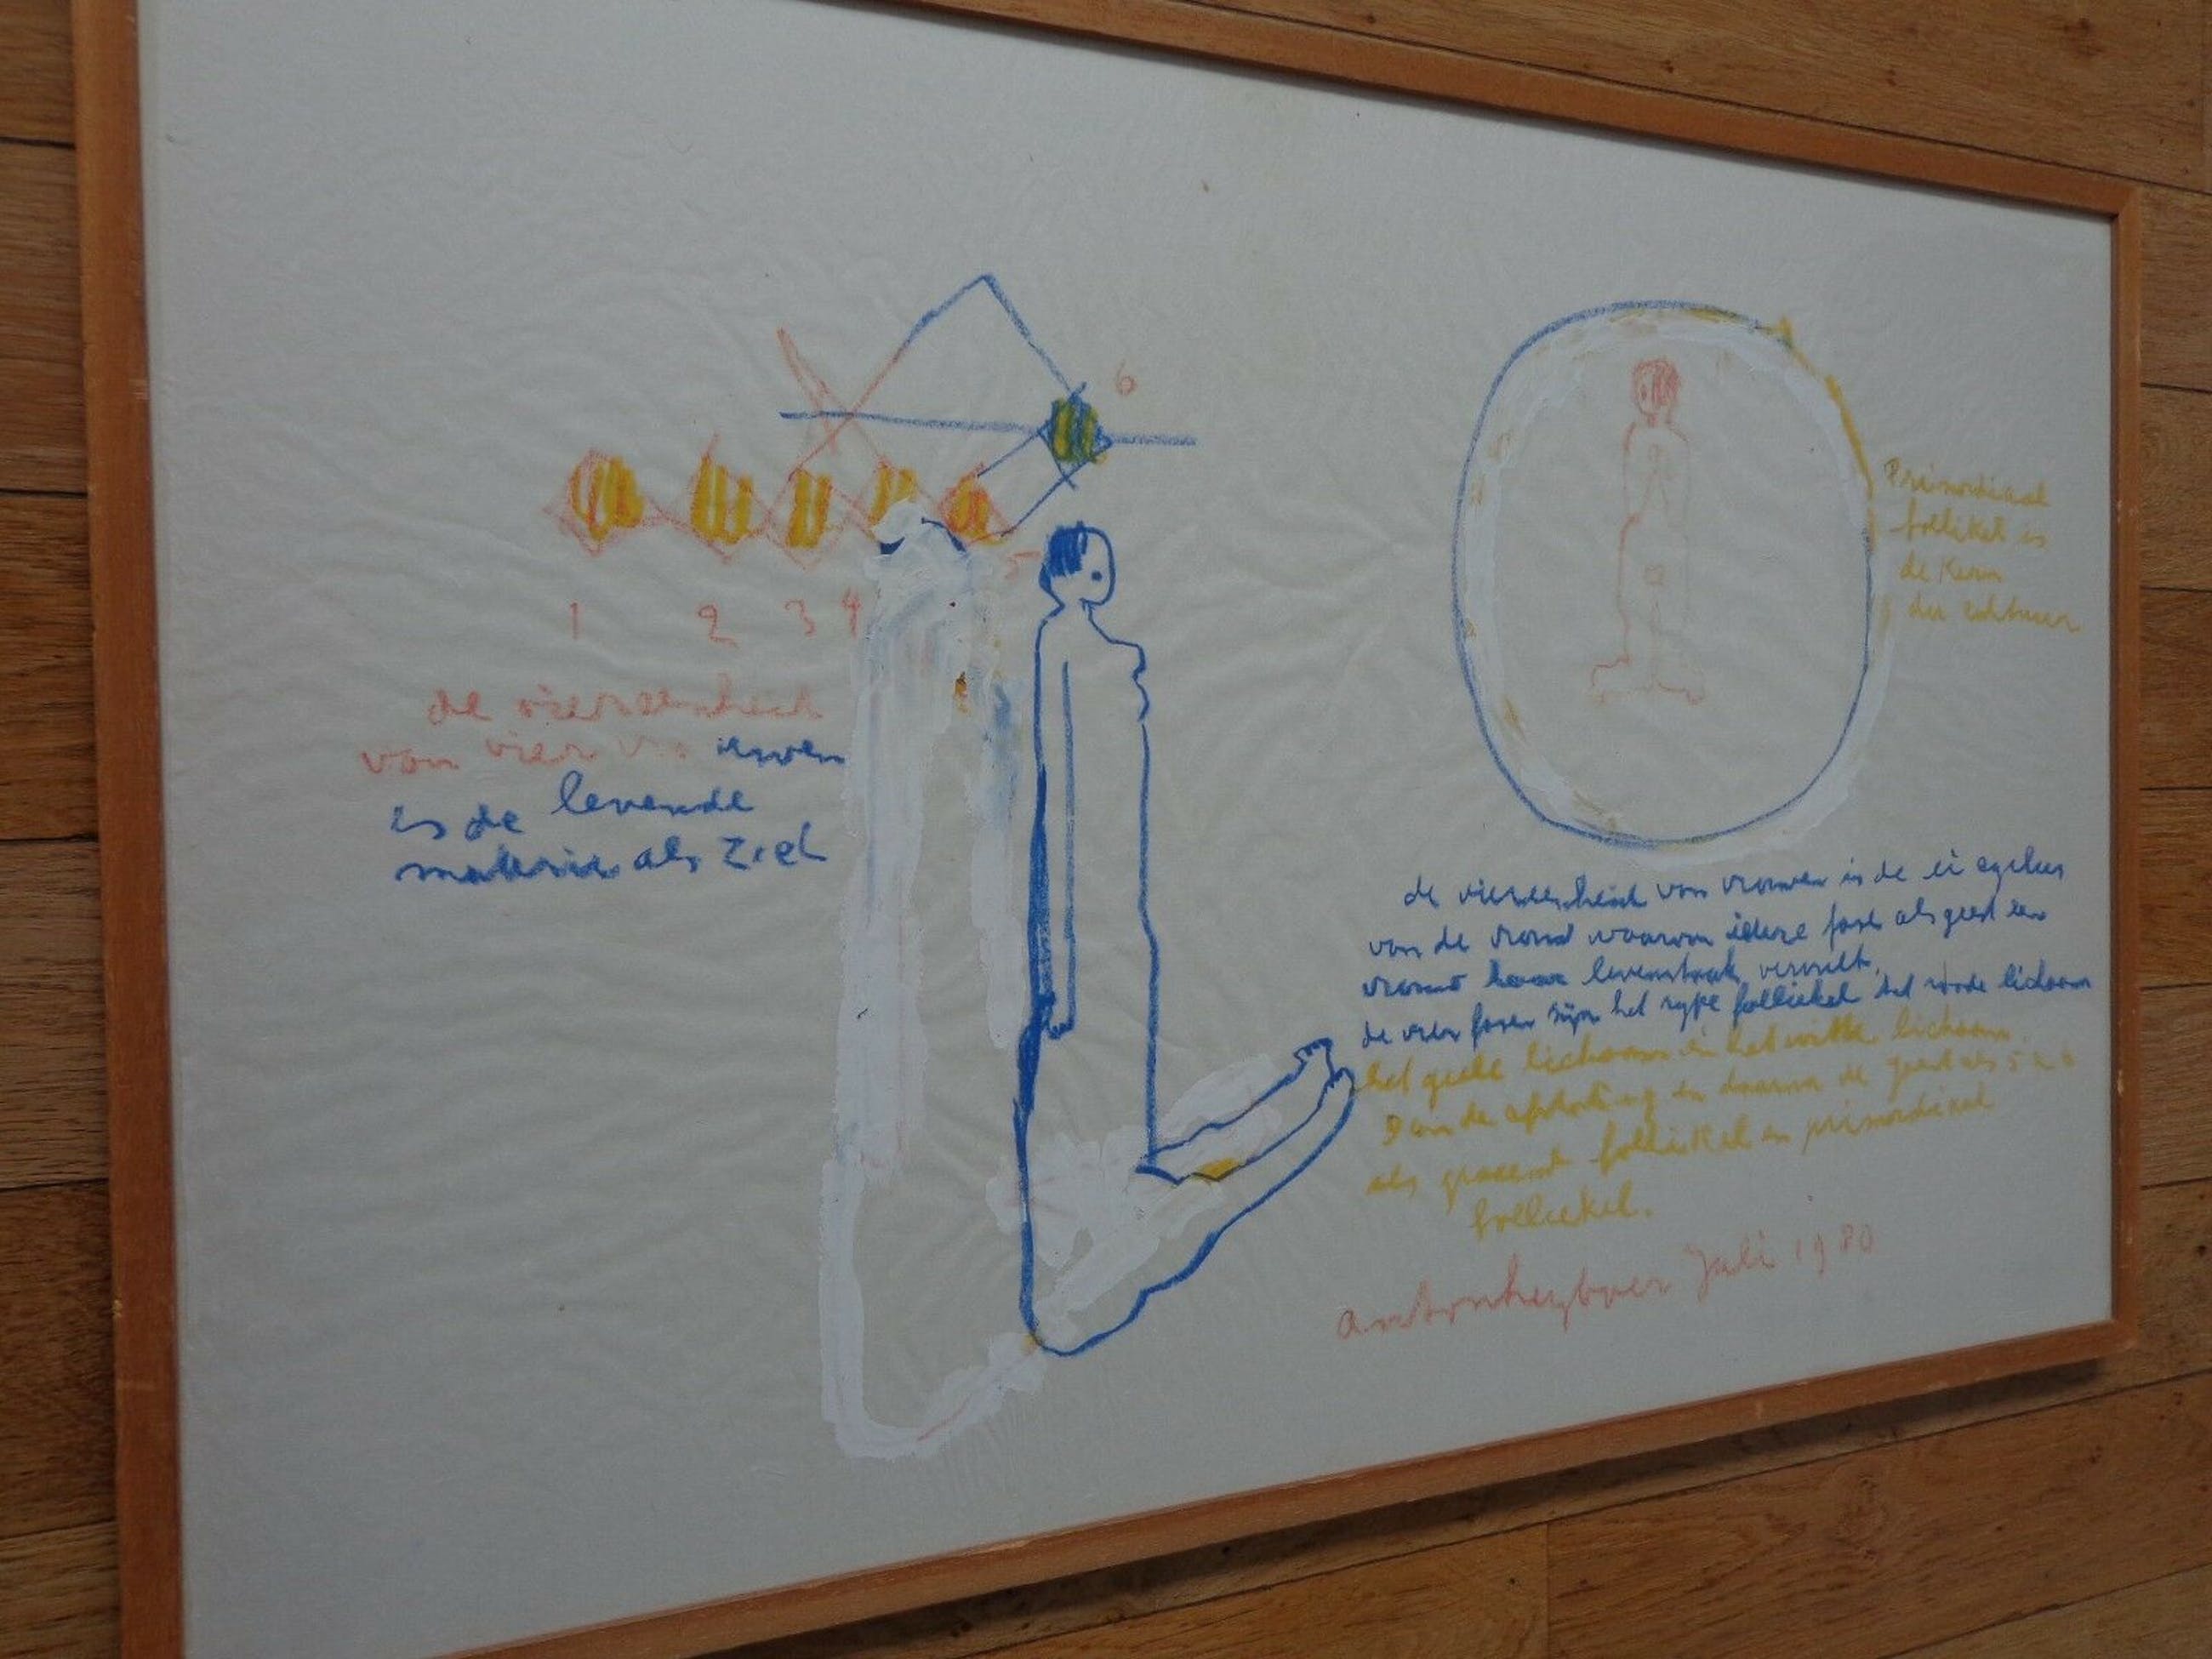 6
5
1 2 3 4
de viereenheid
van vier vrouwen
is de levende
materie als Ziel
Primordiaal
follikel is
de Kern
der
de viereenheid van vrouwen is de ei cyclus
van de vrouw waarvan iedere fase als geest een
vrouw haar levenstaak vervult.
de vier fasen zijn het rype follickel het rode lichaam
het gele lichaam en het witte lichaam
Dan de afstoting en daarna de geest als 5 en 6
als groeiend follickel en primordiaal
follickel.
antonheyboer Juli 1980